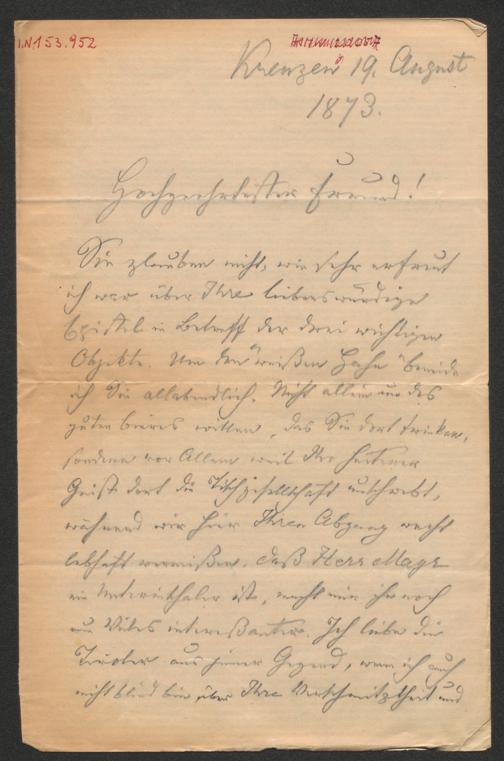 I.N 153.952
Krenzen 19. August
1873.
Hochgeehrtester Freund!
Sie glauben nicht, wie sehr erfreut
ich war über Ihre liebenswürdige
Epistel in Betreff der drei wichtigen
Objekte. Um den "weißen Hahn" beneide
ich Sie allabendlich. Nicht allein um des
guten Bieres willen, das Sie dort trinken,
sondern vor Allem weil Ihr heiterer
Geist dort die Tischgesellschaft umschwebt,
während wir hier Ihren Abgang recht
lebhaft vermißen. Daß Herr Mayr
ein Unterinthaler ist, macht mir ihn noch
um Vieles interessanter. Ich liebe die
Tiroler aus jener Gegend, wenn ich auch
nicht blind bin über Ihre Verschmitztheit und